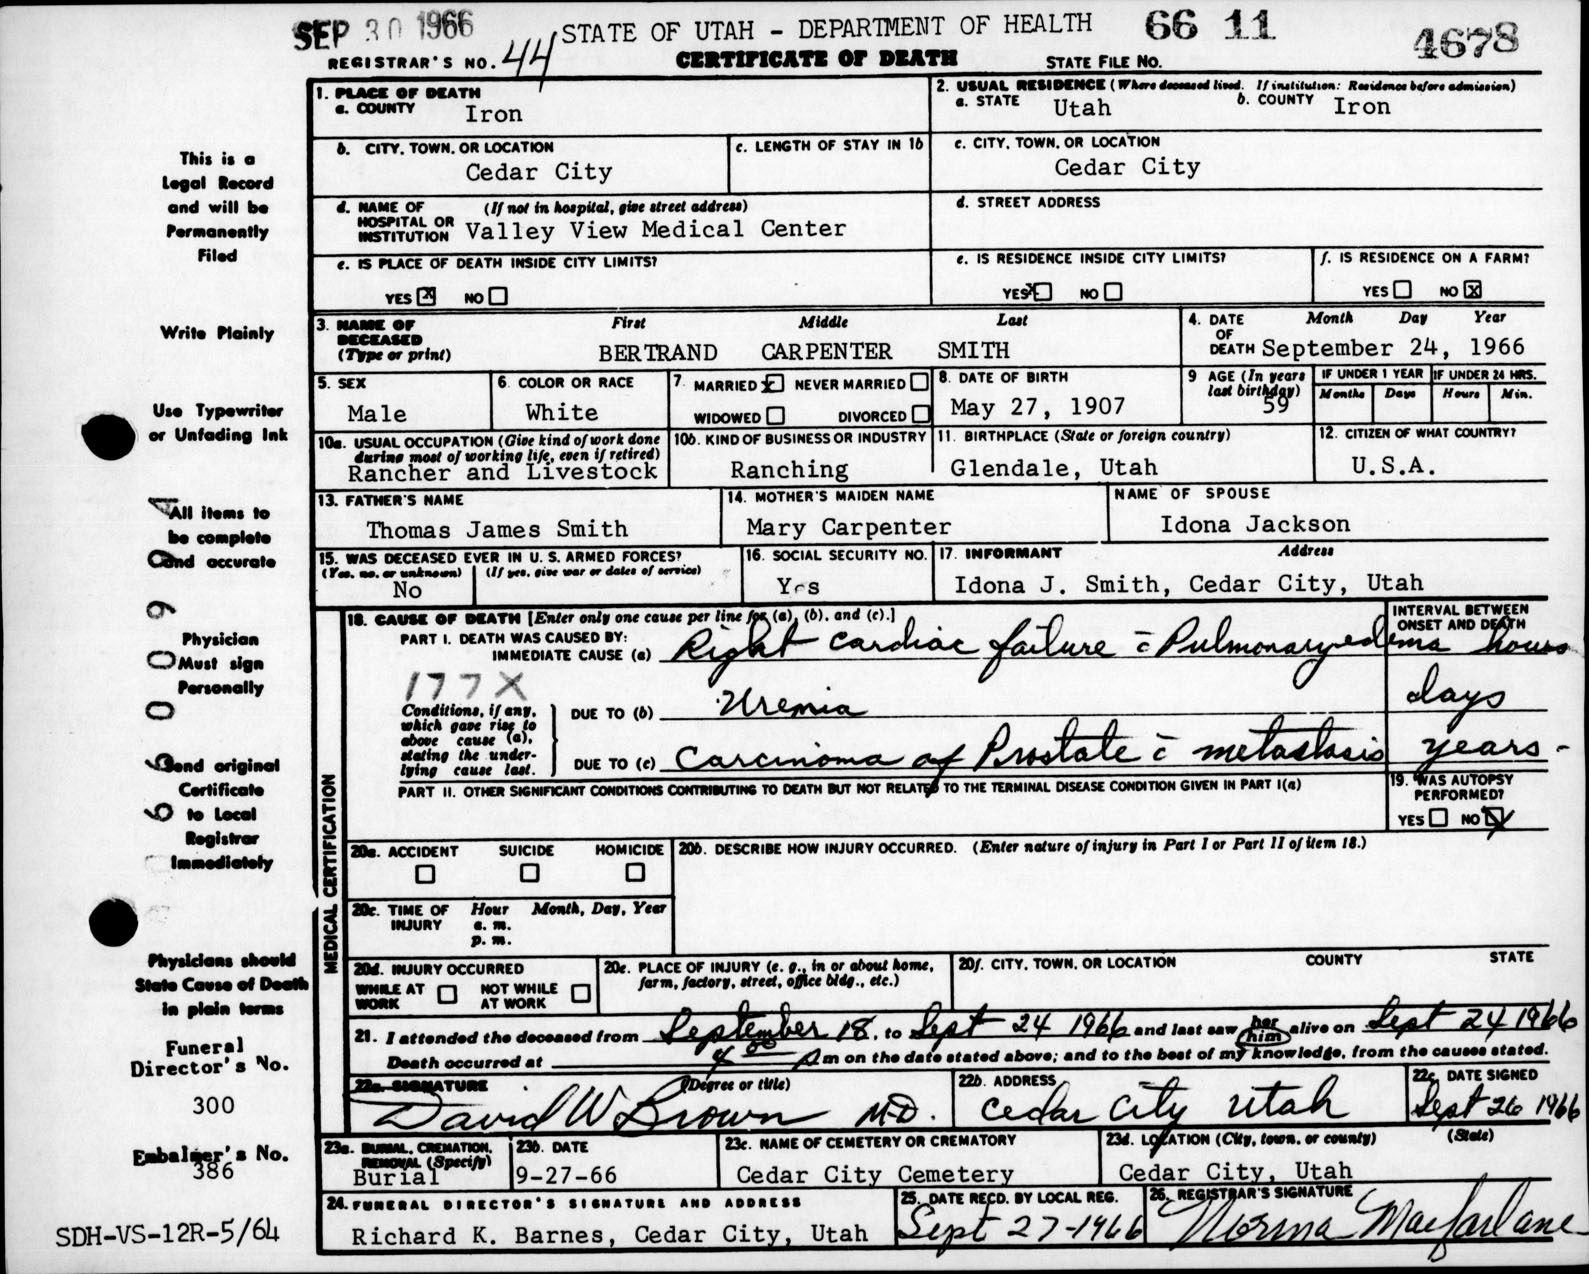 SEP 30 1966 STATE OF UTAH - DEPARTMENT OF HEALTH 66 11 4678
REGISTRAR'S NO. 44 CERTIFICATE OF DEATH STATE FILE NO.
1. PLACE OF DEATH
a. COUNTY Iron
2. USUAL RESIDENCE (Where deceased lived. If institution: Residence before admission)
a. STATE Utah b. COUNTY Iron
b. CITY, TOWN, OR LOCATION
Cedar City
c. LENGTH OF STAY IN 1b
c. CITY, TOWN, OR LOCATION
Cedar City
d. NAME OF (If not in hospital, give street address)
HOSPITAL OR
INSTITUTION Valley View Medical Center
d. STREET ADDRESS
e. IS PLACE OF DEATH INSIDE CITY LIMITS?
YES X NO
e. IS RESIDENCE INSIDE CITY LIMITS?
YES X NO
f. IS RESIDENCE ON A FARM?
YES NO X
3. NAME OF First Middle Last
DECEASED
(Type or print) BERTRAND CARPENTER SMITH
4. DATE Month Day Year
OF
DEATH September 24, 1966
5. SEX
Male
6. COLOR OR RACE
White
7. MARRIED X NEVER MARRIED
WIDOWED DIVORCED
8. DATE OF BIRTH
May 27, 1907
9 AGE (In years
last birthday)
59
IF UNDER 1 YEAR IF UNDER 24 HRS.
Months Days Hours Min.
10a. USUAL OCCUPATION (Give kind of work done
during most of working life, even if retired)
Rancher and Livestock
10b. KIND OF BUSINESS OR INDUSTRY
Ranching
11. BIRTHPLACE (State or foreign country)
Glendale, Utah
12. CITIZEN OF WHAT COUNTRY?
U.S.A.
13. FATHER'S NAME
Thomas James Smith
14. MOTHER'S MAIDEN NAME
Mary Carpenter
NAME OF SPOUSE
Idona Jackson
15. WAS DECEASED EVER IN U. S. ARMED FORCES?
(Yes, no, or unknown) (If yes, give war or dates of service)
No
16. SOCIAL SECURITY NO.
Yes
17. INFORMANT Address
Idona J. Smith, Cedar City, Utah
MEDICAL CERTIFICATION
18. CAUSE OF DEATH [Enter only one cause per line for (a), (b), and (c).]
INTERVAL BETWEEN
ONSET AND DEATH
PART I. DEATH WAS CAUSED BY:
IMMEDIATE CAUSE (a) Right cardiac failure c̄ Pulmonary edema hours
177X
Conditions, if any,
which gave rise to
above cause (a),
stating the under-
lying cause last.
DUE TO (b) Uremia days
DUE TO (c) Carcinoma of Prostate c̄ metastasis years -
PART II. OTHER SIGNIFICANT CONDITIONS CONTRIBUTING TO DEATH BUT NOT RELATED TO THE TERMINAL DISEASE CONDITION GIVEN IN PART I(a)
19. WAS AUTOPSY
PERFORMED?
YES NO X
20a. ACCIDENT SUICIDE HOMICIDE
20b. DESCRIBE HOW INJURY OCCURRED. (Enter nature of injury in Part I or Part II of item 18.)
20c. TIME OF Hour Month, Day, Year
INJURY a. m.
p. m.
20d. INJURY OCCURRED
WHILE AT NOT WHILE
WORK AT WORK
20e. PLACE OF INJURY (e. g., in or about home,
farm, factory, street, office bldg., etc.)
20f. CITY, TOWN, OR LOCATION COUNTY STATE
21. I attended the deceased from September 18, to Sept 24 1966 and last saw her him alive on Sept 24 1966
Death occurred at 4 00 A m on the date stated above; and to the best of my knowledge, from the causes stated.
22a. SIGNATURE (Degree or title)
David W Brown M.D.
22b. ADDRESS
Cedar City Utah
22c. DATE SIGNED
Sept 26 1966
23a. BURIAL, CREMATION,
REMOVAL (Specify)
Burial
23b. DATE
9-27-66
23c. NAME OF CEMETERY OR CREMATORY
Cedar City Cemetery
23d. LOCATION (City, town, or county) (State)
Cedar City, Utah
24. FUNERAL DIRECTOR'S SIGNATURE AND ADDRESS
Richard K. Barnes, Cedar City, Utah
25. DATE RECD. BY LOCAL REG.
Sept 27-1966
26. REGISTRAR'S SIGNATURE
Norma Macfarlane
This is a
Legal Record
and will be
Permanently
Filed
Write Plainly
Use Typewriter
or Unfading Ink
All items to
be complete
and accurate
Physician
Must sign
Personally
Send original
Certificate
to Local
Registrar
Immediately
Physicians should
State Cause of Death
in plain terms
Funeral
Director's No.
300
Embalmer's No.
386
SDH-VS-12R-5/64